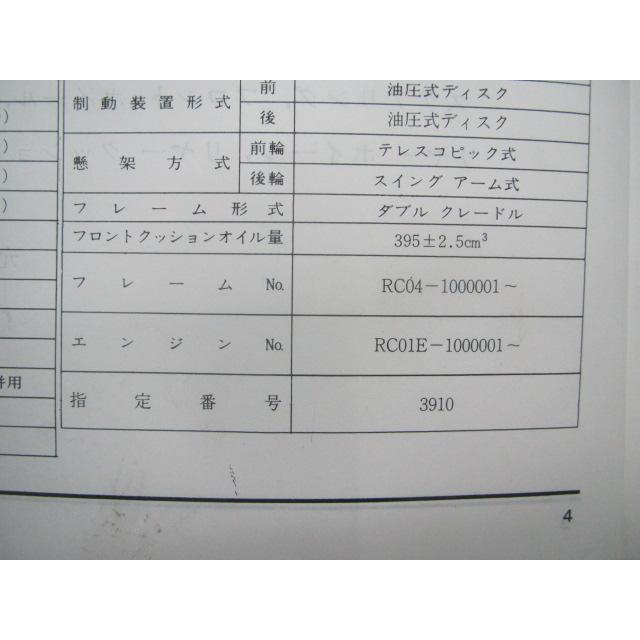 制動装置形式 前 油圧式ディスク
後 油圧式ディスク
懸架方式 前輪 テレスコピック式
後輪 スイング アーム式
フレーム形式 ダブル クレードル
フロントクッションオイル量 395±2.5cm³
フレーム No. RC04-1000001~
エンジン No. RC01E-1000001~
併用
指定番号 3910
4